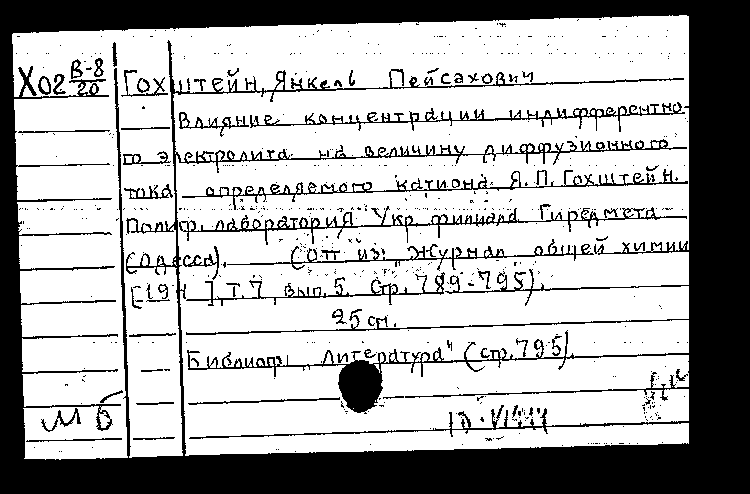 Х02 В-8/20 Гохштейн, Янкель Пейсахович
Влияние концентрации индифферентно-
го электролита на величину диффузионного
тока определяемого катиона. Я. П. Гохштейн.
Полиф. лаборатория Укр. филиала Гиредмета
(Одесса). (Отт из: „Журнал общей химии
], т. 7, вып. 5. Стр. 789-795).
25 см.
Библиогр: „Литература" (стр. 795).
М Б